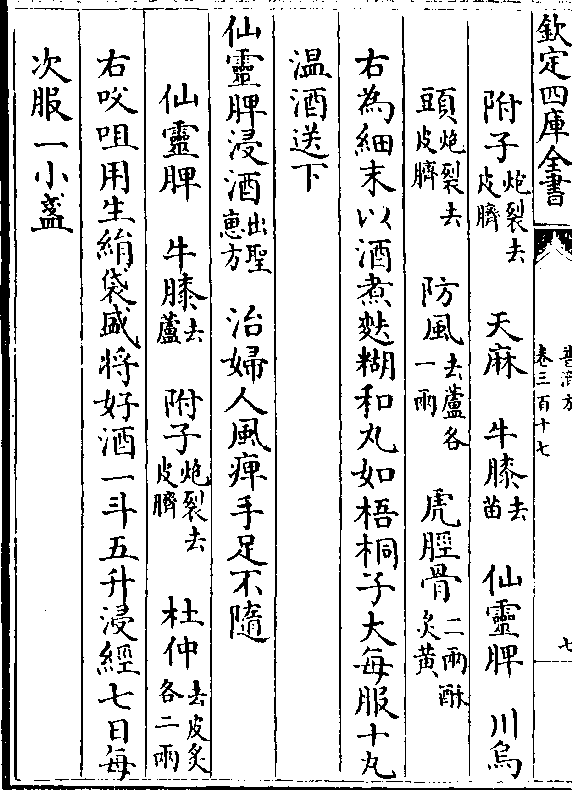 欽定四庫全書
普濟方
卷三百十七
七
附子炮裂去皮臍 天麻 牛膝去苗 仙靈脾 川烏
頭炮裂去皮臍 防風去蘆各一兩 虎脛骨二兩酥炙黄
右為細末以酒煮麫糊和丸如梧桐子大每服十丸
温酒送下
仙靈脾浸酒出聖惠方 治婦人風痺手足不隨
仙靈脾 牛膝去蘆 附子炮裂去皮臍 杜仲去皮炙各二兩
右㕮咀用生絹袋盛將好酒一斗五升浸經七日每
次服一小盞